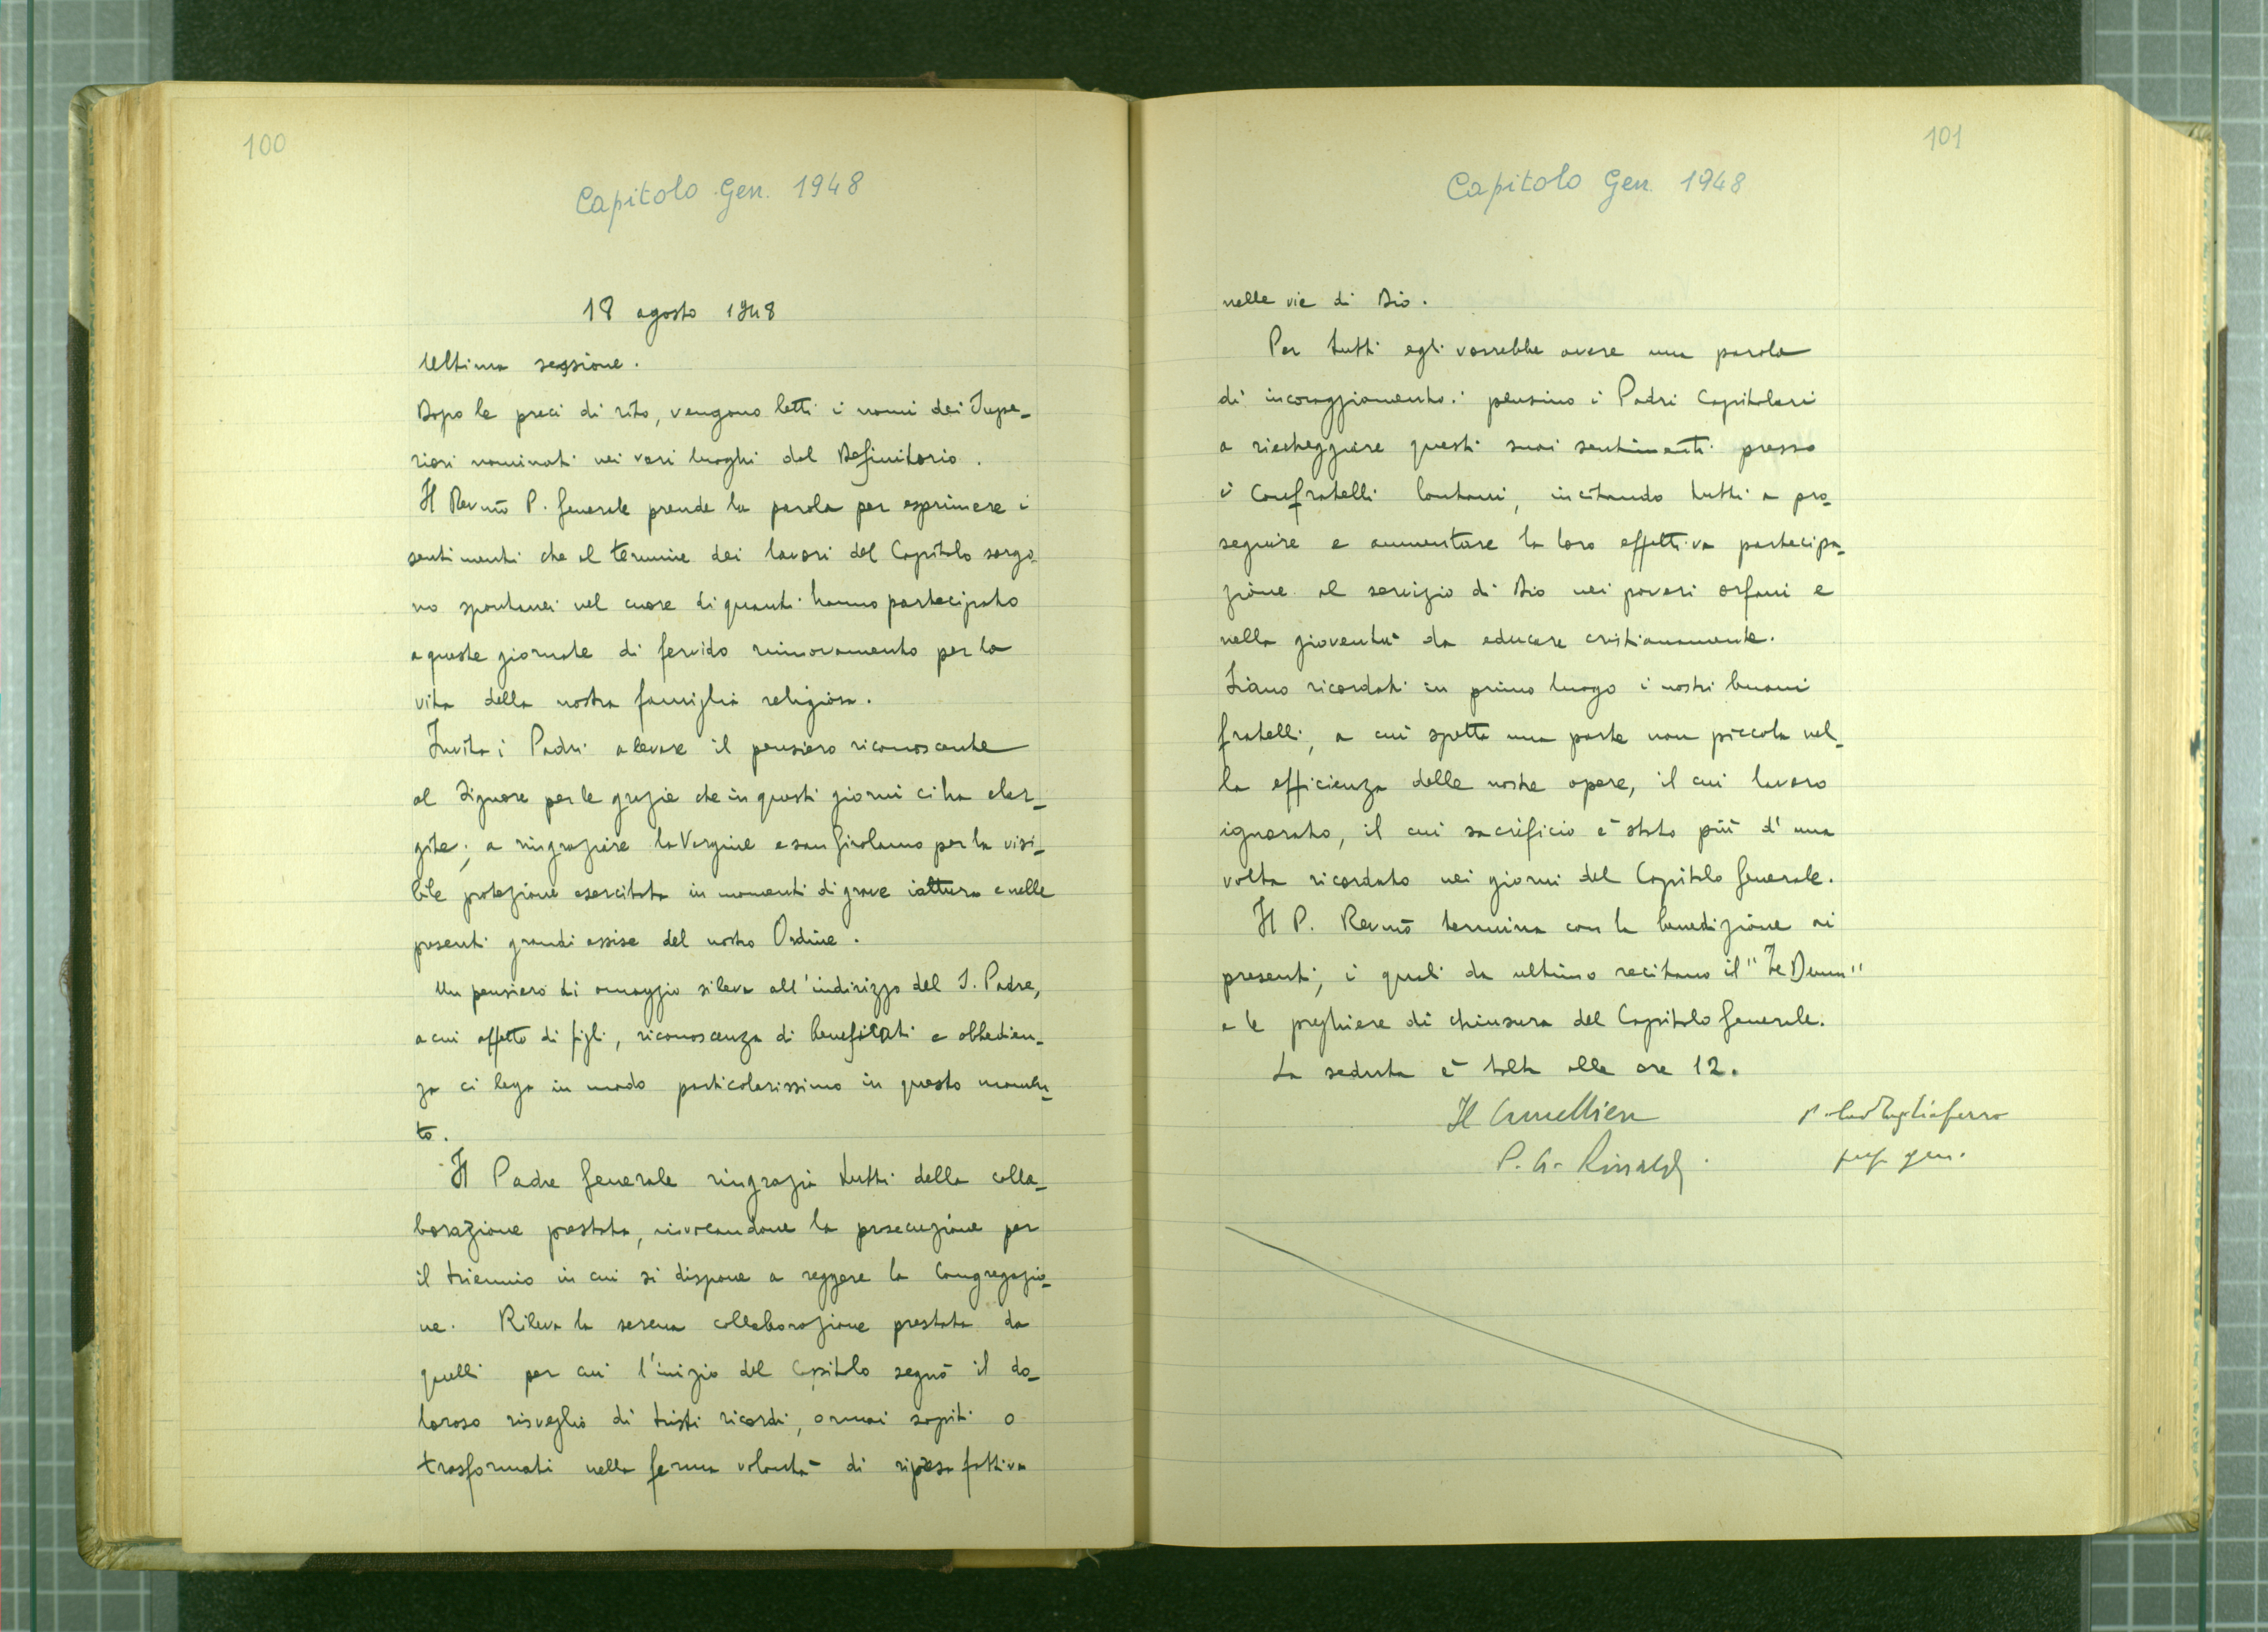 100
Capitolo Gen. 1948
18 agosto 1948
Ultima sessione.
Dopo le preci di rito, vengono letti i nomi dei Supe-
riori nominati nei vari luoghi dal Definitorio.
Il Rev.mo P. Generale prende la parola per esprimere i
sentimenti che al termine dei lavori del Capitolo sorgo-
no spontanei nel cuore di quanti hanno partecipato
a queste giornate di fervido rinnovamento per la
vita della nostra famiglia religiosa.
Invita i Padri a levare il pensiero riconoscente
al Signore per le grazie che in questi giorni ci ha elar-
gite; a ringraziare la Vergine e san Girolamo per la visi-
bile protezione esercitata in momenti di grave iattura e nelle
presenti grandi assise del nostro Ordine.
Un pensiero di omaggio si leva all'indirizzo del S. Padre,
a cui affetto di figli, riconoscenza di beneficati e obbedien-
za ci lega in modo particolarissimo in questo momen-
to.
Il Padre Generale ringrazia tutti della colla-
borazione prestata, invocandone la prosecuzione per
il triennio in cui si dispone a reggere la Congregazio-
ne. Rileva la serena collaborazione prestata da
quelli per cui l'inizio del Capitolo segnò il do-
loroso risveglio di tristi ricordi, ormai sopiti o
trasformati nella ferma volontà di ripresa fattiva
101
Capitolo Gen. 1948
nelle vie di Dio.
Per tutti egli vorrebbe avere una parola
di incoraggiamento: pensino i Padri Capitolari
a riecheggiare questi suoi sentimenti presso
i Confratelli lontani, incitando tutti a pro-
seguire e aumentare la loro effettiva partecipa-
zione al servizio di Dio nei poveri orfani e
nella gioventù da educare cristianamente.
Siano ricordati in primo luogo i nostri buoni
fratelli, a cui spetta una parte non piccola nel-
la efficienza delle nostre opere, il cui lavoro
ignorato, il cui sacrificio è stato più d'una
volta ricordato nei giorni del Capitolo Generale.
Il P. Rev.mo termina con la benedizione ai
presenti, i quali da ultimo recitano il "Te Deum"
e le preghiere di chiusura del Capitolo Generale.
La seduta è tolta alle ore 12.
Il Cancelliere
P. G. Rinaldi
Tagliaferro
gen.